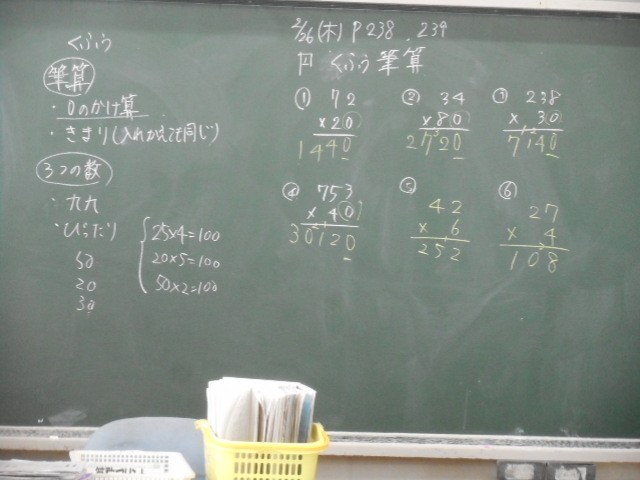 くふう
筆算
・0のかけ算
・きまり(入れかえても同じ)
3つの数
・九九
・ぴったり
50
20
30
25×4=100
20×5=100
50×2=100
2/26(木) P238,239
くふう筆算
① 72
×20
1440
② 34
×80
2720
③ 238
×30
7140
④ 753
×40
30120
⑤ 42
×6
252
⑥ 27
×4
108